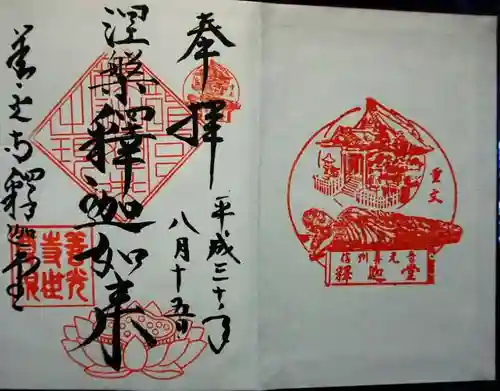 奉拝
平成三十年
八月十五日
涅槃釋迦如来
善光寺釋迦堂
重文
信州善光寺
釋迦堂